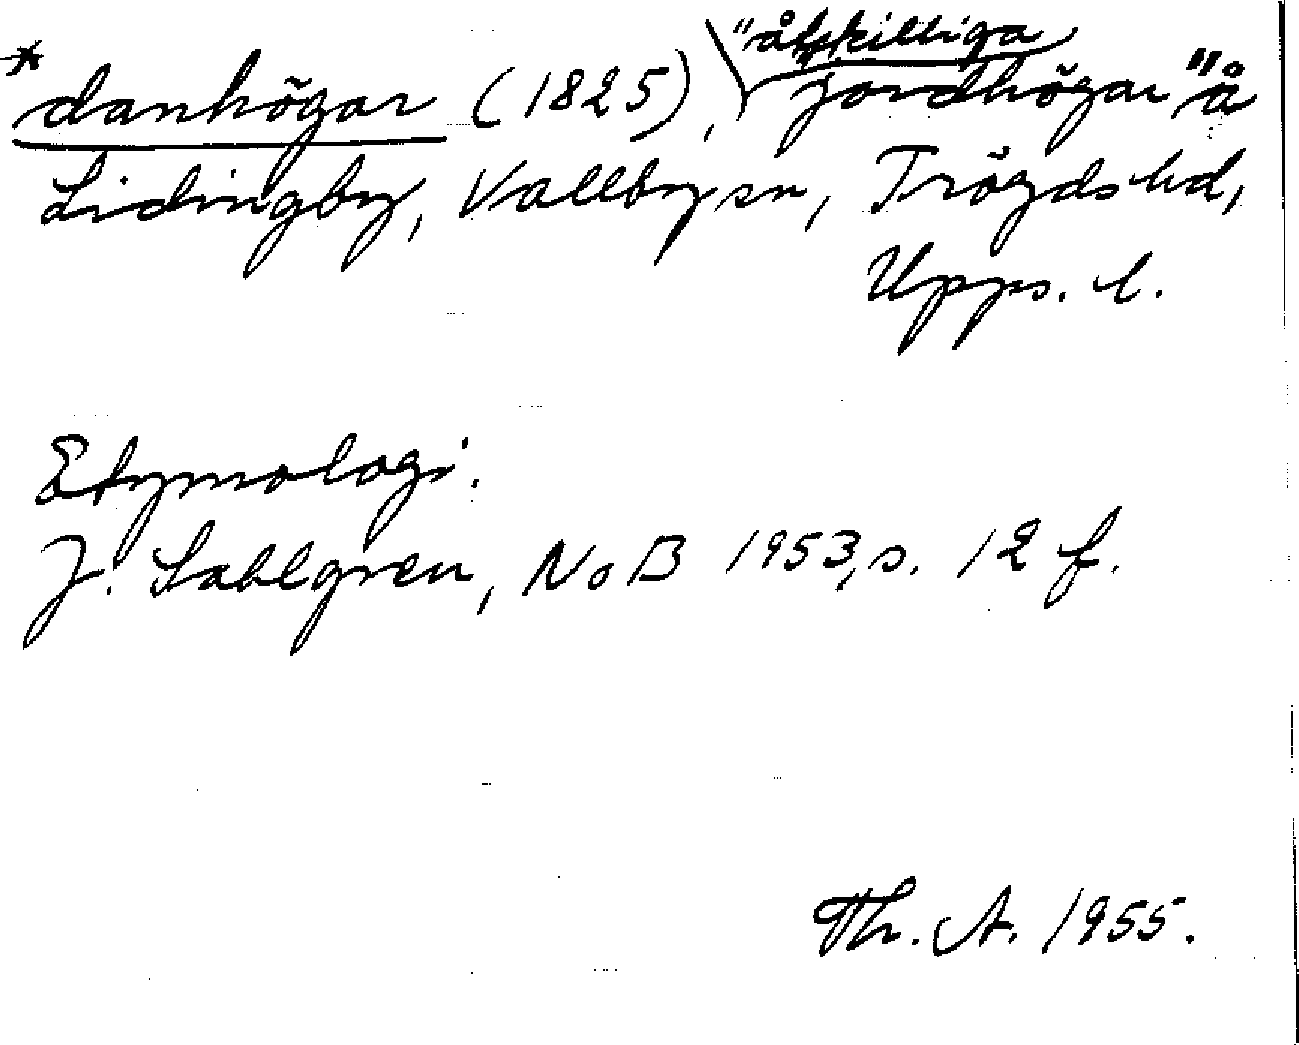 *danhögar (1825), "åtskilliga jordhögar" å
Lidingby, Vallby sn, Trögds hd,
Upps. l.
Etymologi.
J. Sahlgren, NoB 1953, s. 12 f.
Th. A. 1955.